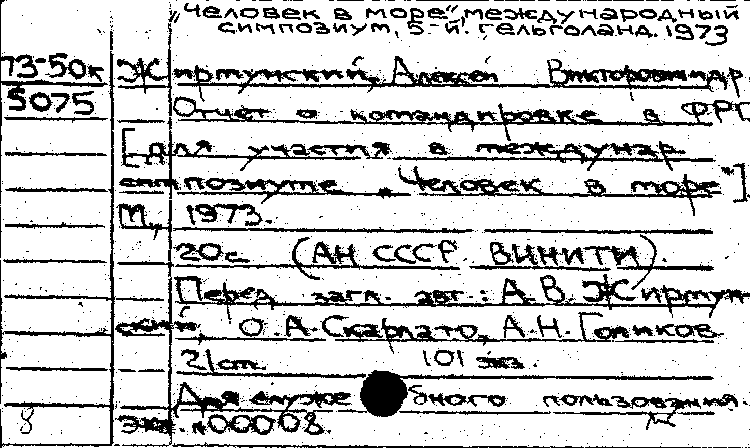 "Человек в море", международный
симпозиум, 5-й. Гельголанд. 1973
73-50к Жирмунский, Алексей Викторович и др
5075 Отчет о командировке в ФРГ
[для участия в междунар.
симпозиуме „Человек в море"]
М., 1973.
20с. (АН СССР. ВИНИТИ).
Перед загл. авт.: А.В. Жирмун-
ский, О.А. Скарлато, А.Н. Голиков
21 см. 101 экз.
Для служебного пользования.
8 экз. №00008.